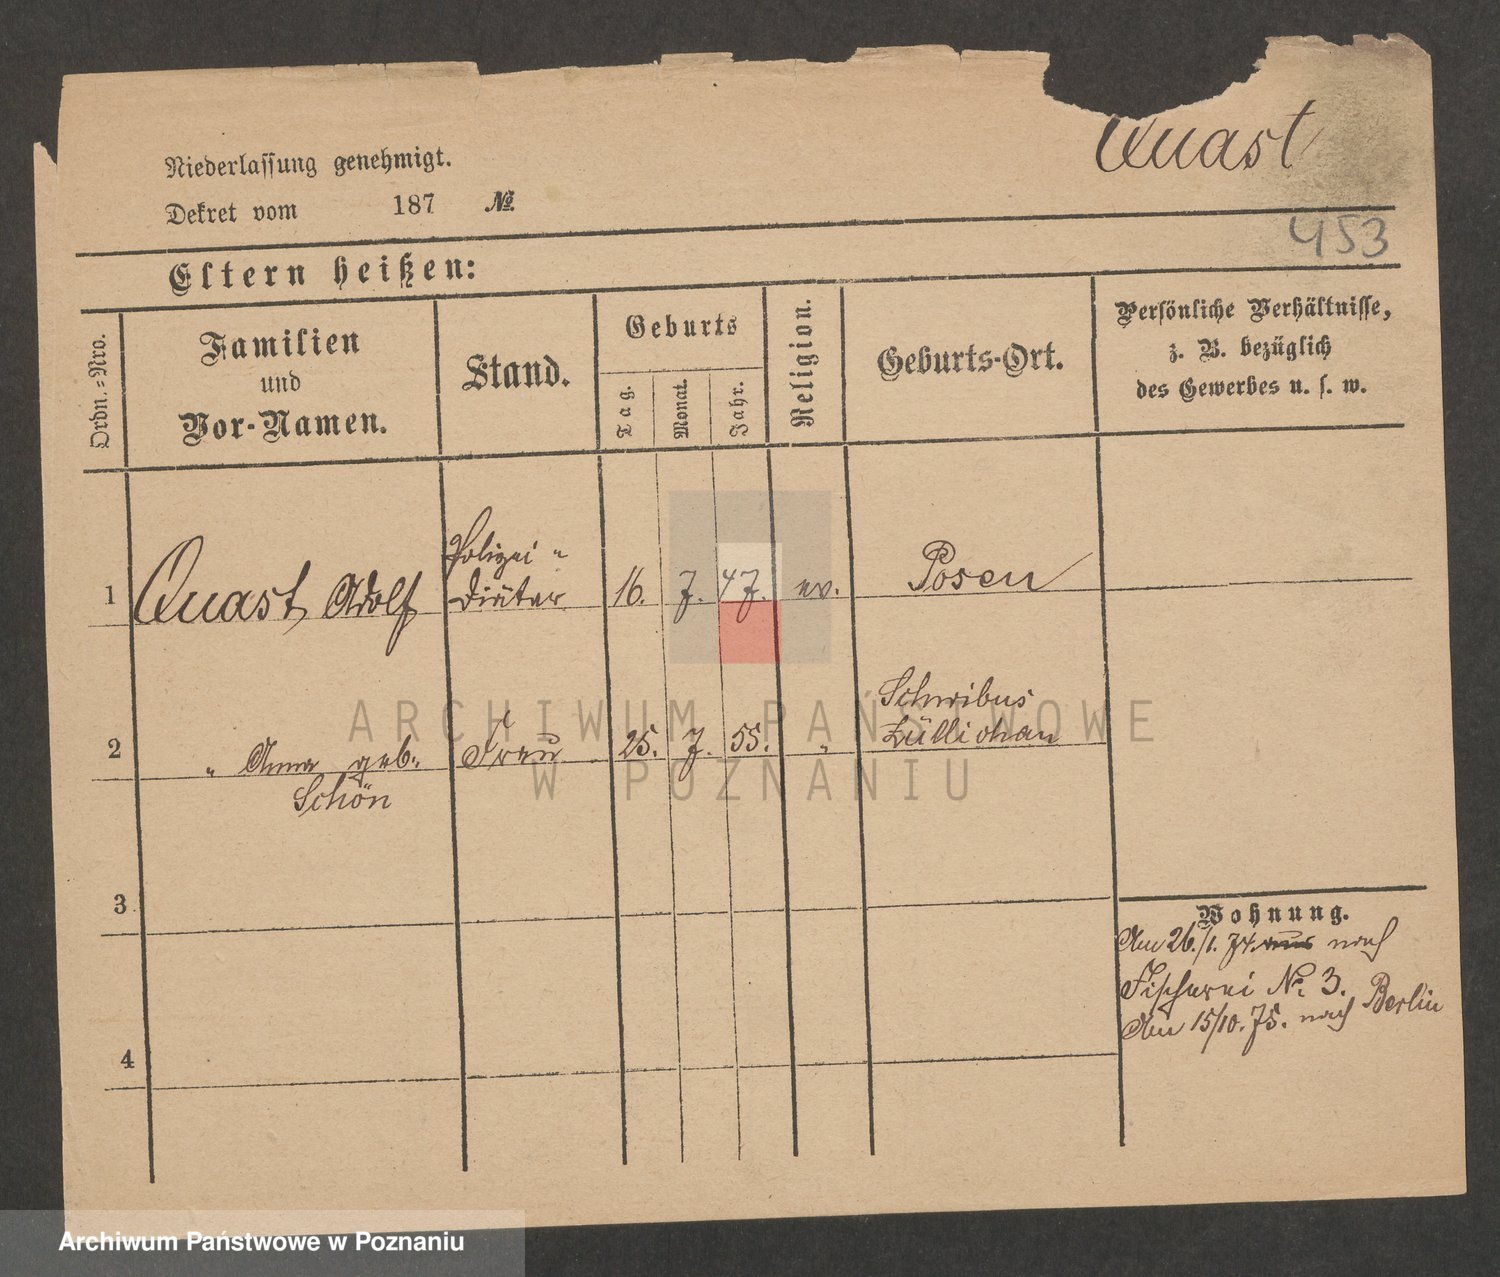 Quast
Niederlassung genehmigt.
Dekret vom 187 №.
453
Eltern heißen:
Ordn.=Nro.
Familien
und
Vor-Namen.
Stand.
Geburts
Tag.
Monat.
Jahr.
Religion.
Geburts-Ort.
Persönliche Verhältnisse,
z. B. bezüglich
des Gewerbes u. s. w.
1 Quast, Adolf
Polizei "
Diätar
16. 7. 47. ev. Posen
2 " Anna geb.
Schön
Frau 25. 7. 55. "
Schwibus
Züllichau
3
4
Wohnung.
Am 26./1. 74. aus nach
Fischerei № 3.
Am 15/10. 75. nach Berlin
ARCHIWUM PAŃSTWOWE
W POZNANIU
Archiwum Państwowe w Poznaniu